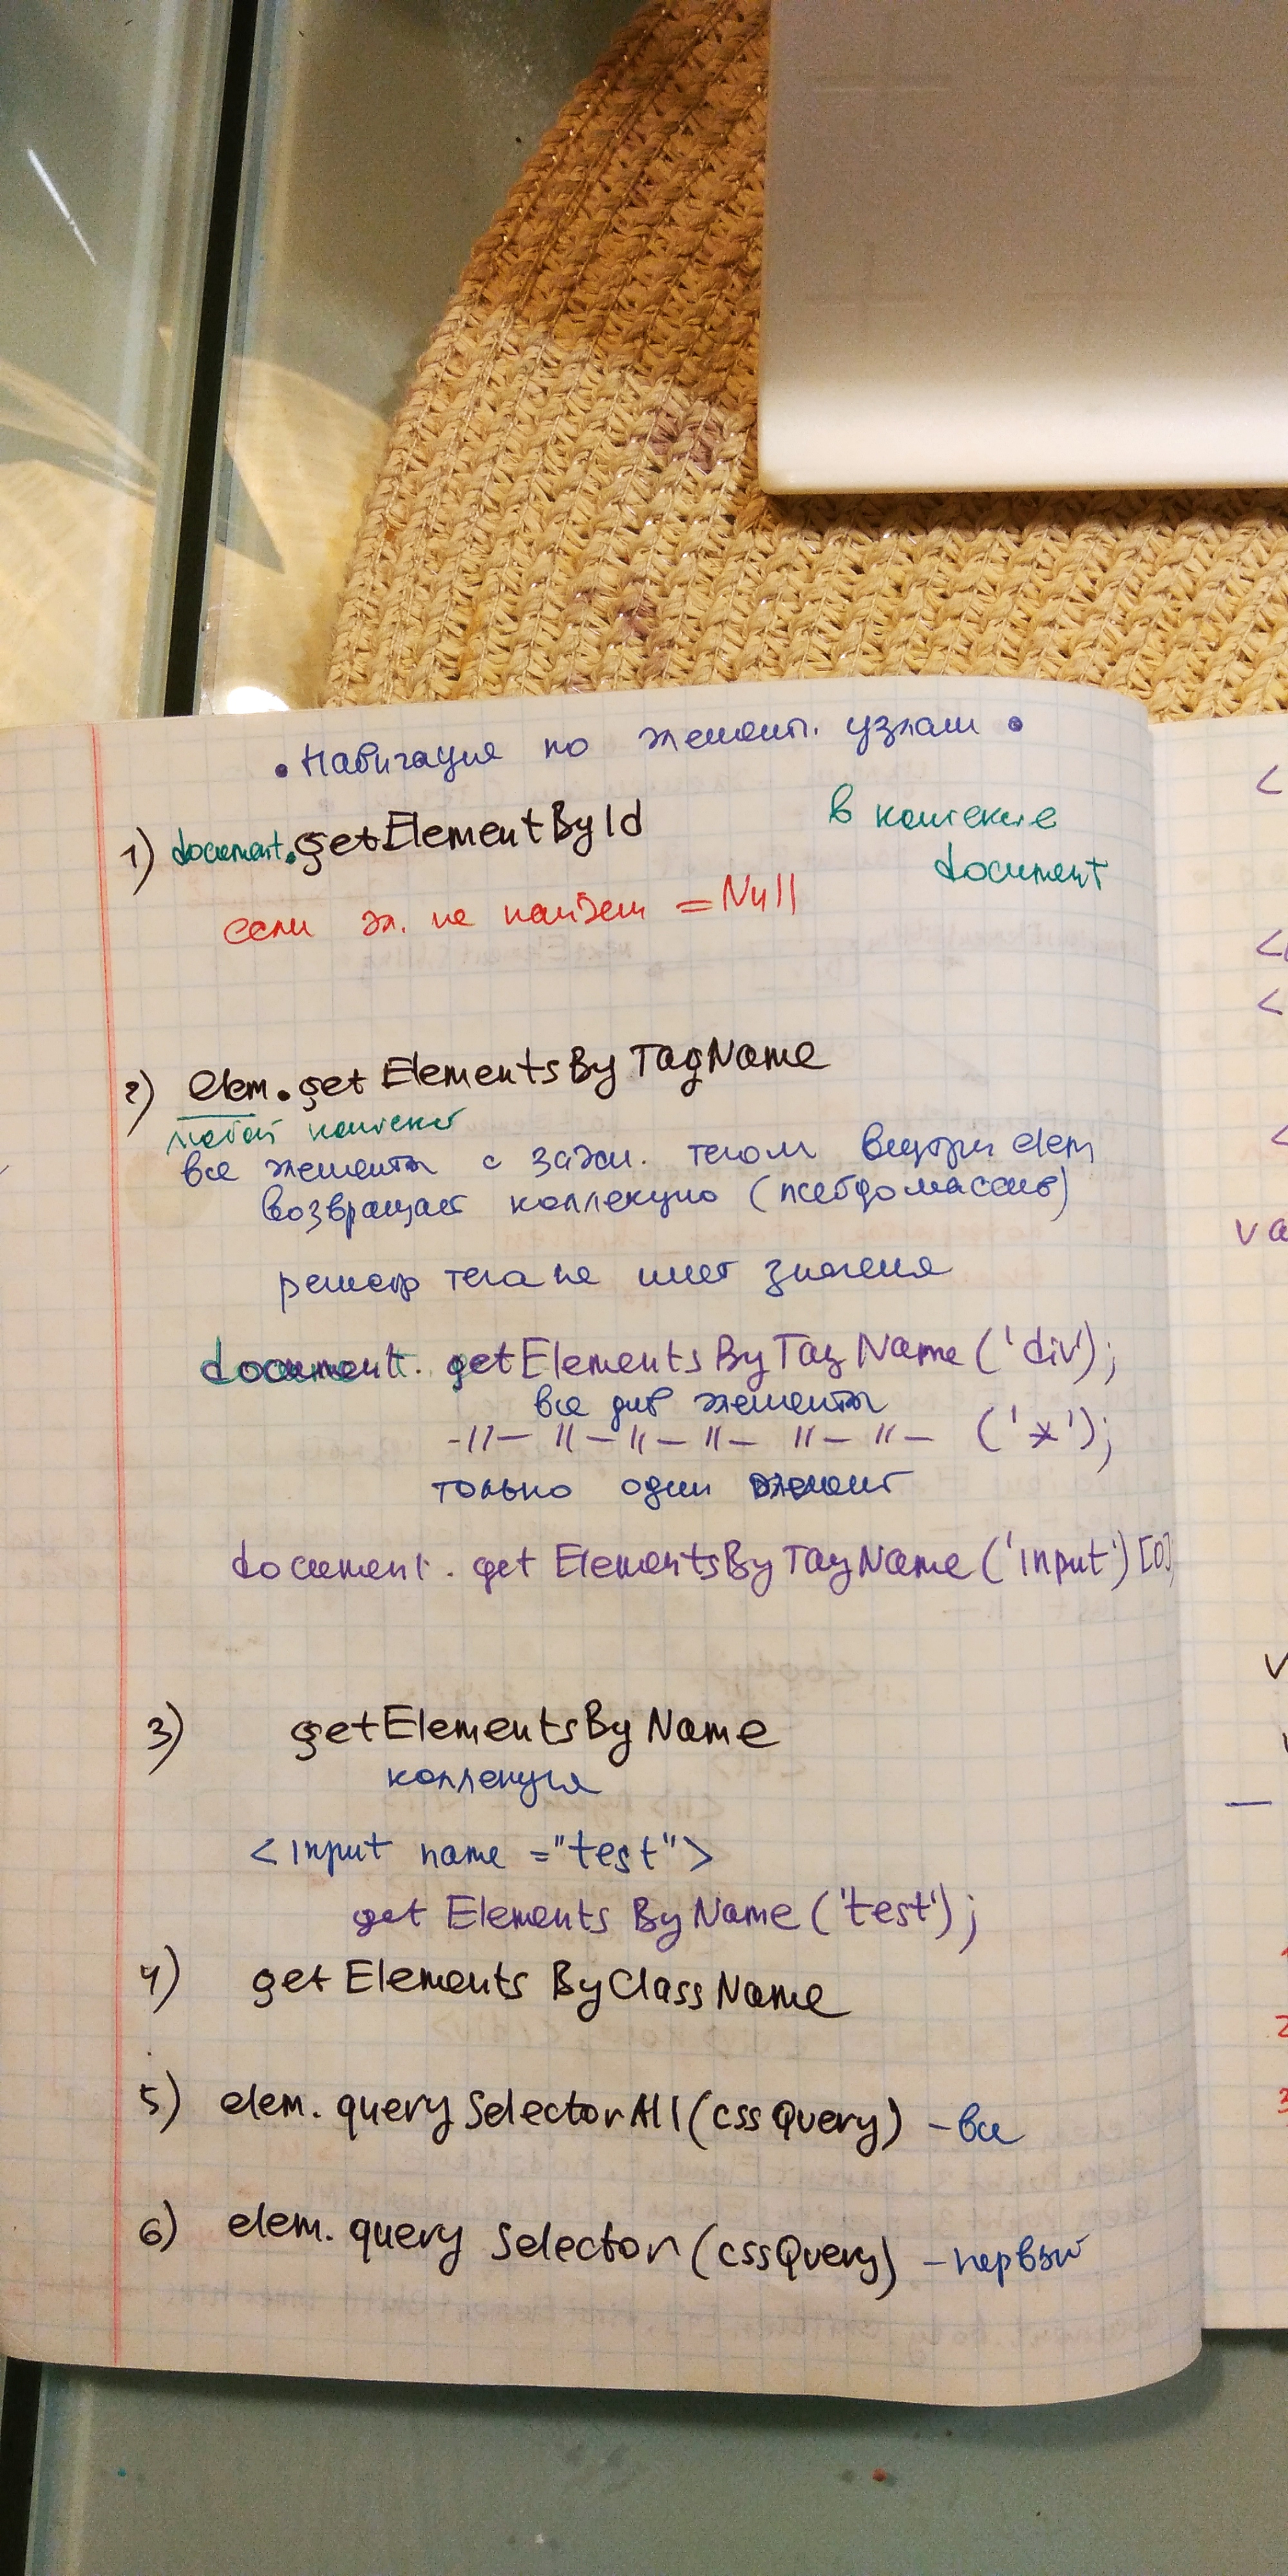 • Навигация по элемент. узлам •
1) document.getElementById
в контексте
document
если эл. не найден = Null
2) elem.getElementsByTagName
любой контекст
все элементы с задан. тегом внутри elem
возвращает коллекцию (псевдомассив)
регистр тега не имеет значения
document. getElementsByTagName('div');
все див элементы
-//- //- //- //- //- //- ('*');
только один элемент
document. getElementsByTagName('input')[0]
3) getElementsByName
коллекция
<input name ="test">
getElementsByName('test');
4) getElementsByClassName
5) elem. querySelectorAll(cssQuery) - все
6) elem. querySelector(cssQuery) - первый
<
<
<
<
va